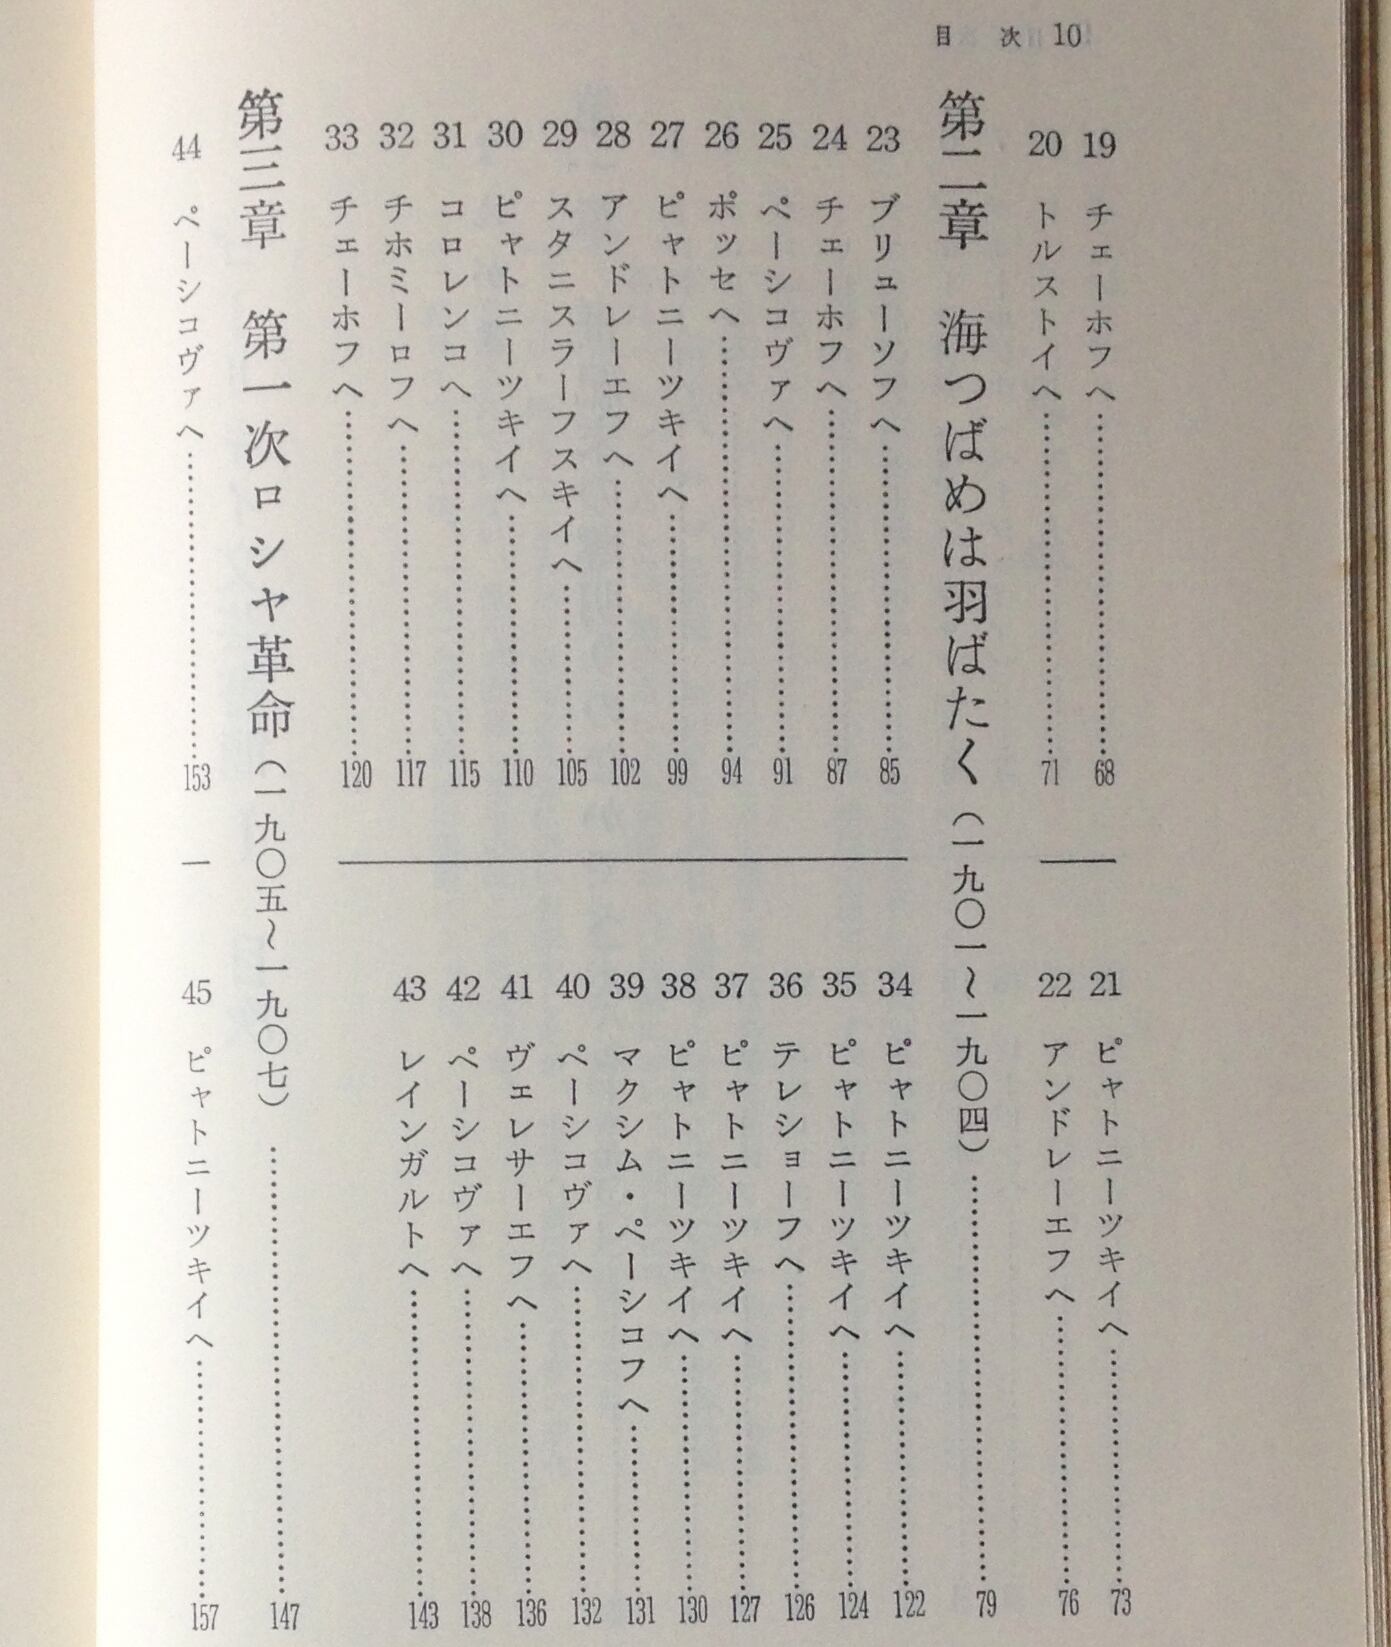 目次 10
19 チェーホフへ……68
20 トルストイへ……71
21 ピャトニーツキイへ……73
22 アンドレーエフへ……76
第二章 海つばめは羽ばたく(一九〇一~一九〇四)……79
23 ブリューソフへ……85
24 チェーホフへ……87
25 ペーシコヴァへ……91
26 ポッセへ……94
27 ピャトニーツキイへ……99
28 アンドレーエフへ……102
29 スタニスラーフスキイへ……105
30 ピャトニーツキイへ……110
31 コロレンコへ……115
32 チホミーロフへ……117
33 チェーホフへ……120
34 ピャトニーツキイへ……122
35 ピャトニーツキイへ……124
36 テレショーフへ……126
37 ピャトニーツキイへ……127
38 ピャトニーツキイへ……130
39 マクシム・ペーシコフへ……131
40 ペーシコヴァへ……132
41 ヴェレサーエフへ……136
42 ペーシコヴァへ……138
43 レインガルトへ……143
第三章 第一次ロシヤ革命(一九〇五~一九〇七)……147
44 ペーシコヴァへ……153
45 ピャトニーツキイへ……157